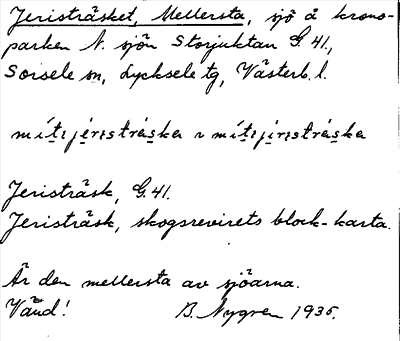 Jeristräsket, Mellersta, sjö å krono-
parken N. sjön Storjuktan G. 41.,
Sorsele sn, Lycksele tg, Västerb. l.
mítijeristráska ~ mítijeristráska
Jeristräsk, G. 41.
Jeristräsk, skogsrevirets block-karta.
Är den mellersta av sjöarna.
Vänd! B. Nygren 1935.